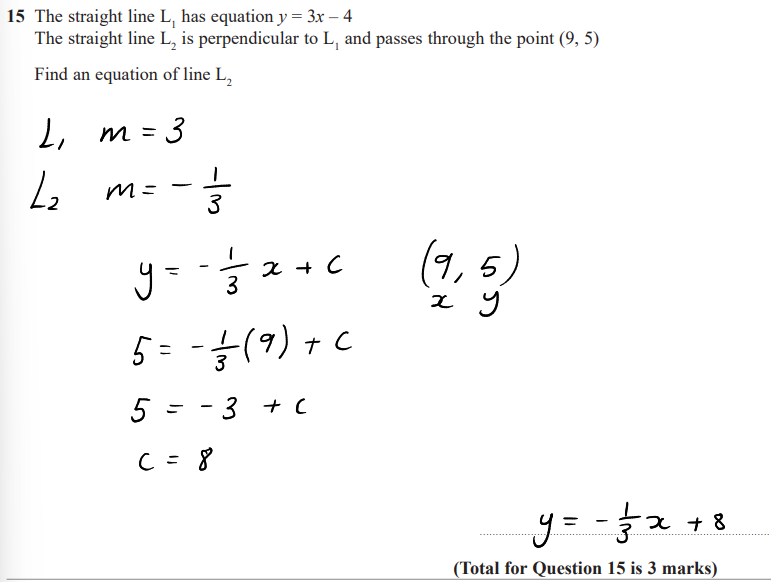 15 The straight line L₁ has equation y = 3x – 4
The straight line L₂ is perpendicular to L₁ and passes through the point (9, 5)
Find an equation of line L₂
L₁ m = 3
L₂ m = - 1/3
y = - 1/3 x + c (9, 5)
x y
5 = - 1/3 (9) + c
5 = - 3 + c
c = 8
y = - 1/3 x + 8
(Total for Question 15 is 3 marks)